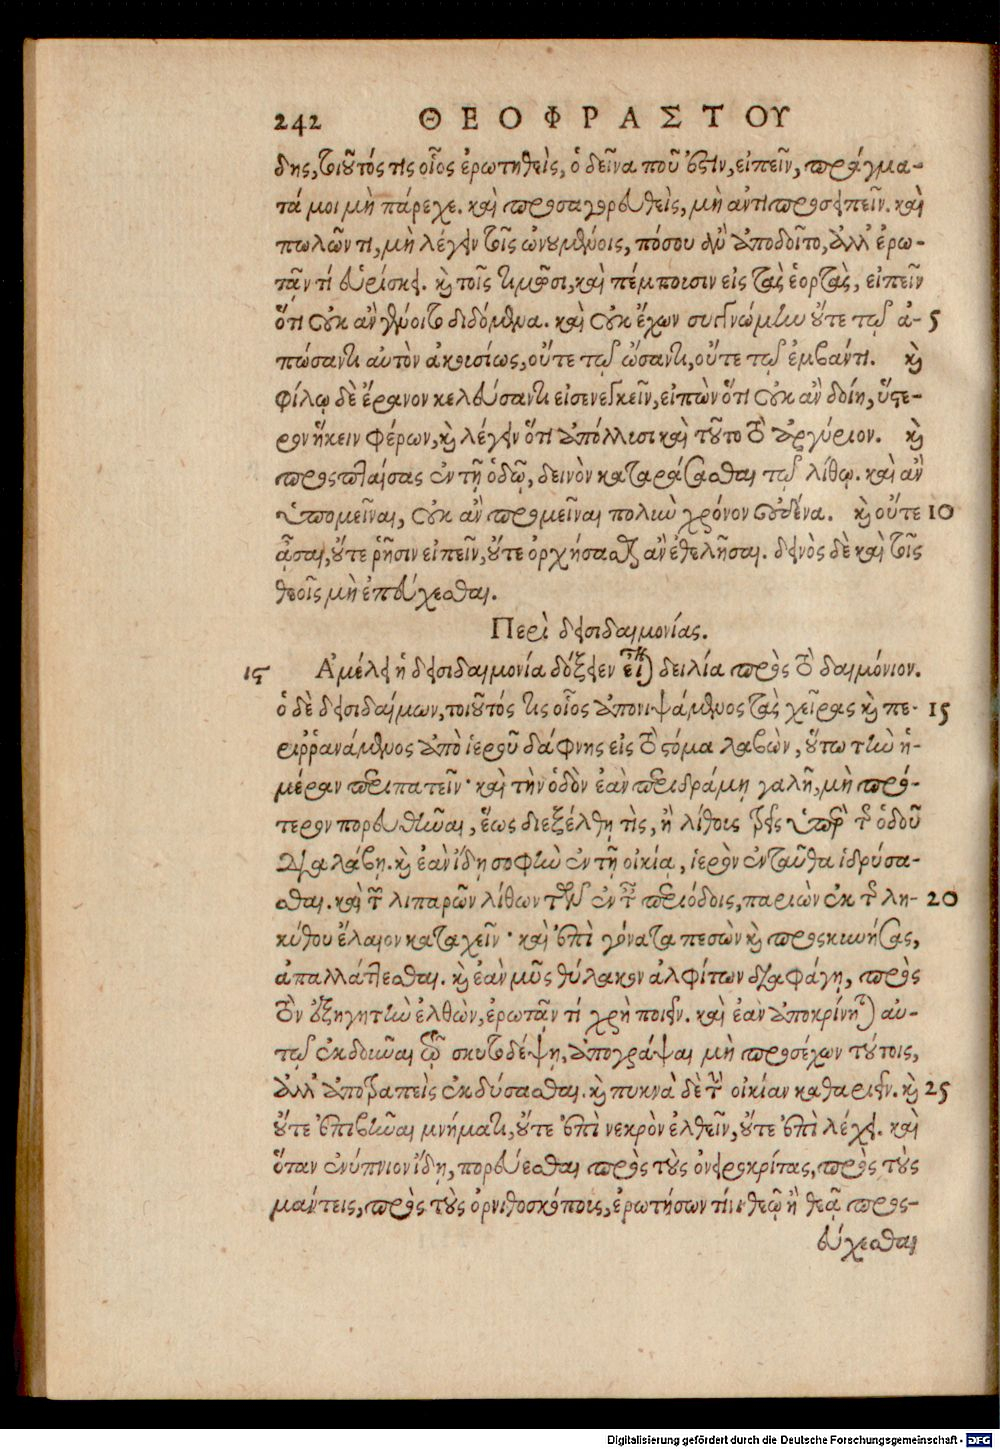 242 ΘΕΟΦΡΑΣΤΟΥ
δης, τοιοῦτός τις οἷος ἐρωτηθεὶς, ὁ δεῖνα ποῦ ἐστιν, εἰπεῖν, πράγμα-
τά μοι μὴ πάρεχε. καὶ προσαγορευθεὶς, μὴ ἀντιπροσειπεῖν. καὶ
πωλῶν τι, μὴ λέγειν τοῖς ὠνουμένοις, πόσου ἂν ἀποδοῖτο, ἀλλ' ἐρω-
τᾶν τί εὑρίσκει. καὶ τοῖς τιμῶσι, καὶ πέμπουσιν εἰς τὰς ἑορτὰς, εἰπεῖν
ὅτι οὐκ ἂν γένοιτο διδόμενα. καὶ οὐκ ἔχων συγγνώμην οὔτε τῷ ἀ- 5
πώσαντι αὐτὸν ἀκουσίως, οὔτε τῷ ὤσαντι, οὔτε τῷ ἐμβάντι. καὶ
φίλῳ δὲ ἔρανον κελεύσαντι εἰσενεγκεῖν, εἰπὼν ὅτι οὐκ ἂν δοίη, ὕστε-
ρον ἥκειν φέρων, καὶ λέγειν ὅτι ἀπόλλυσι καὶ τοῦτο τὸ ἀργύριον. καὶ
προσπταίσας ἐν τῇ ὁδῷ, δεινὸν καταράσασθαι τῷ λίθῳ. καὶ ἂν
ὑπομεῖναι, οὐκ ἂν προμεῖναι πολιὺ χρόνον οὐδένα. καὶ οὔτε 10
ᾆσαι, οὔτε ῥῆσιν εἰπεῖν, οὔτε ὀρχήσασθαι ἂν ἐθελῆσαι. δεινὸς δὲ καὶ τοῖς
θεοῖς μὴ ἐπεύχεσθαι.
Περὶ δεισιδαιμονίας.
ιϛ Ἀμέλει ἡ δεισιδαιμονία δόξειεν εἶναι δειλία πρὸς τὸ δαιμόνιον.
ὁ δὲ δεισιδαίμων, τοιοῦτός τις οἷος ἀπονιψάμενος τὰς χεῖρας καὶ πε- 15
ριῤῥανάμενος ἀπὸ ἱεροῦ δάφνης εἰς τὸ στόμα λαβὼν, οὕτω τὴν ἡ-
μέραν περιπατεῖν· καὶ τὴν ὁδὸν ἐὰν περιδράμῃ γαλῆ, μὴ πρό-
τερον πορευθῆναι, ἕως διεξέλθῃ τὶς, ἢ λίθους τρεῖς ὑπὲρ τῆς ὁδοῦ
διαλάβῃ. καὶ ἐὰν ἴδῃ σοφὴν ἐν τῇ οἰκίᾳ, ἱερὸν ἐνταῦθα ἱδρύσα-
σθαι. καὶ τῶν λιπαρῶν λίθων τῶν ἐν ταῖς περιόδοις, παριὼν ἐκ τῆς λη- 20
κύθου ἔλαιον καταχεῖν· καὶ ἐπὶ γόνατα πεσὼν καὶ προσκυνήσας,
ἀπαλλάττεσθαι. καὶ ἐὰν μῦς θύλακον ἀλφίτων διαφάγῃ, πρὸς
τὸν ἐξηγητὴν ἐλθὼν, ἐρωτᾶν τί χρὴ ποιεῖν. καὶ ἐὰν ἀποκρίνηται αὐ-
τῷ ἐκδοῦναι τῷ σκυτοδέψῃ, ἀπογράψαι μὴ προσέχων τούτοις,
ἀλλ' ἀποτραπεὶς ἐκδύσασθαι. καὶ πυκνὰ δὲ τὴν οἰκίαν καθαριεῖν. καὶ 25
οὔτε ἐπιβῆναι μνήματι, οὔτε ἐπὶ νεκρὸν ἐλθεῖν, οὔτε ἐπὶ λέχει. καὶ
ὅταν ἐνύπνιον ἴδῃ, πορεύεσθαι πρὸς τοὺς ὀνειροκρίτας, πρὸς τοὺς
μάντεις, πρὸς τοὺς ὀρνιθοσκόπους, ἐρωτήσων τίνι θεῷ ἢ θεᾷ προς-
εύχεσθαι
Digitalisierung gefördert durch die Deutsche Forschungsgemeinschaft - DFG